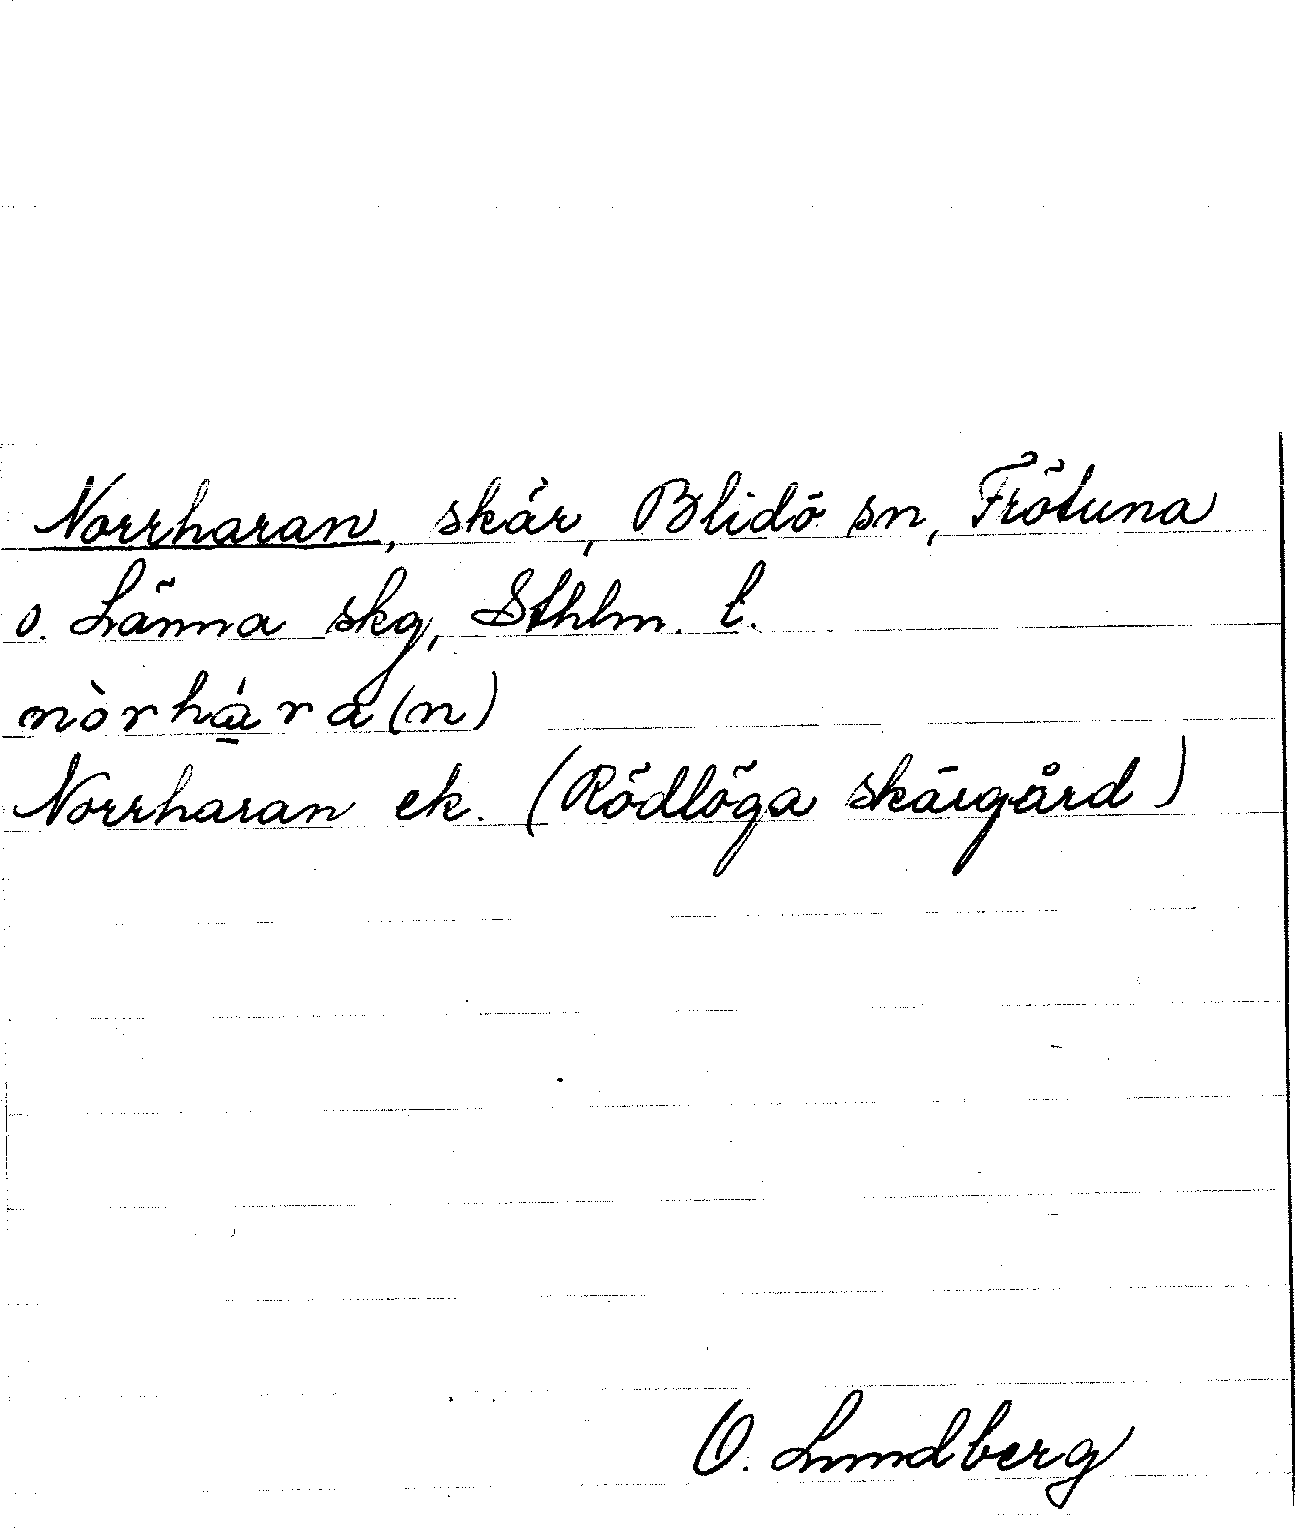 Norrharan, skär, Blidö sn, Frötuna
o. Länna skg, Sthlm. l.
nòrhá̱ra(n)
Norrharan ek. (Rödlöga skärgård)
O. Lundberg